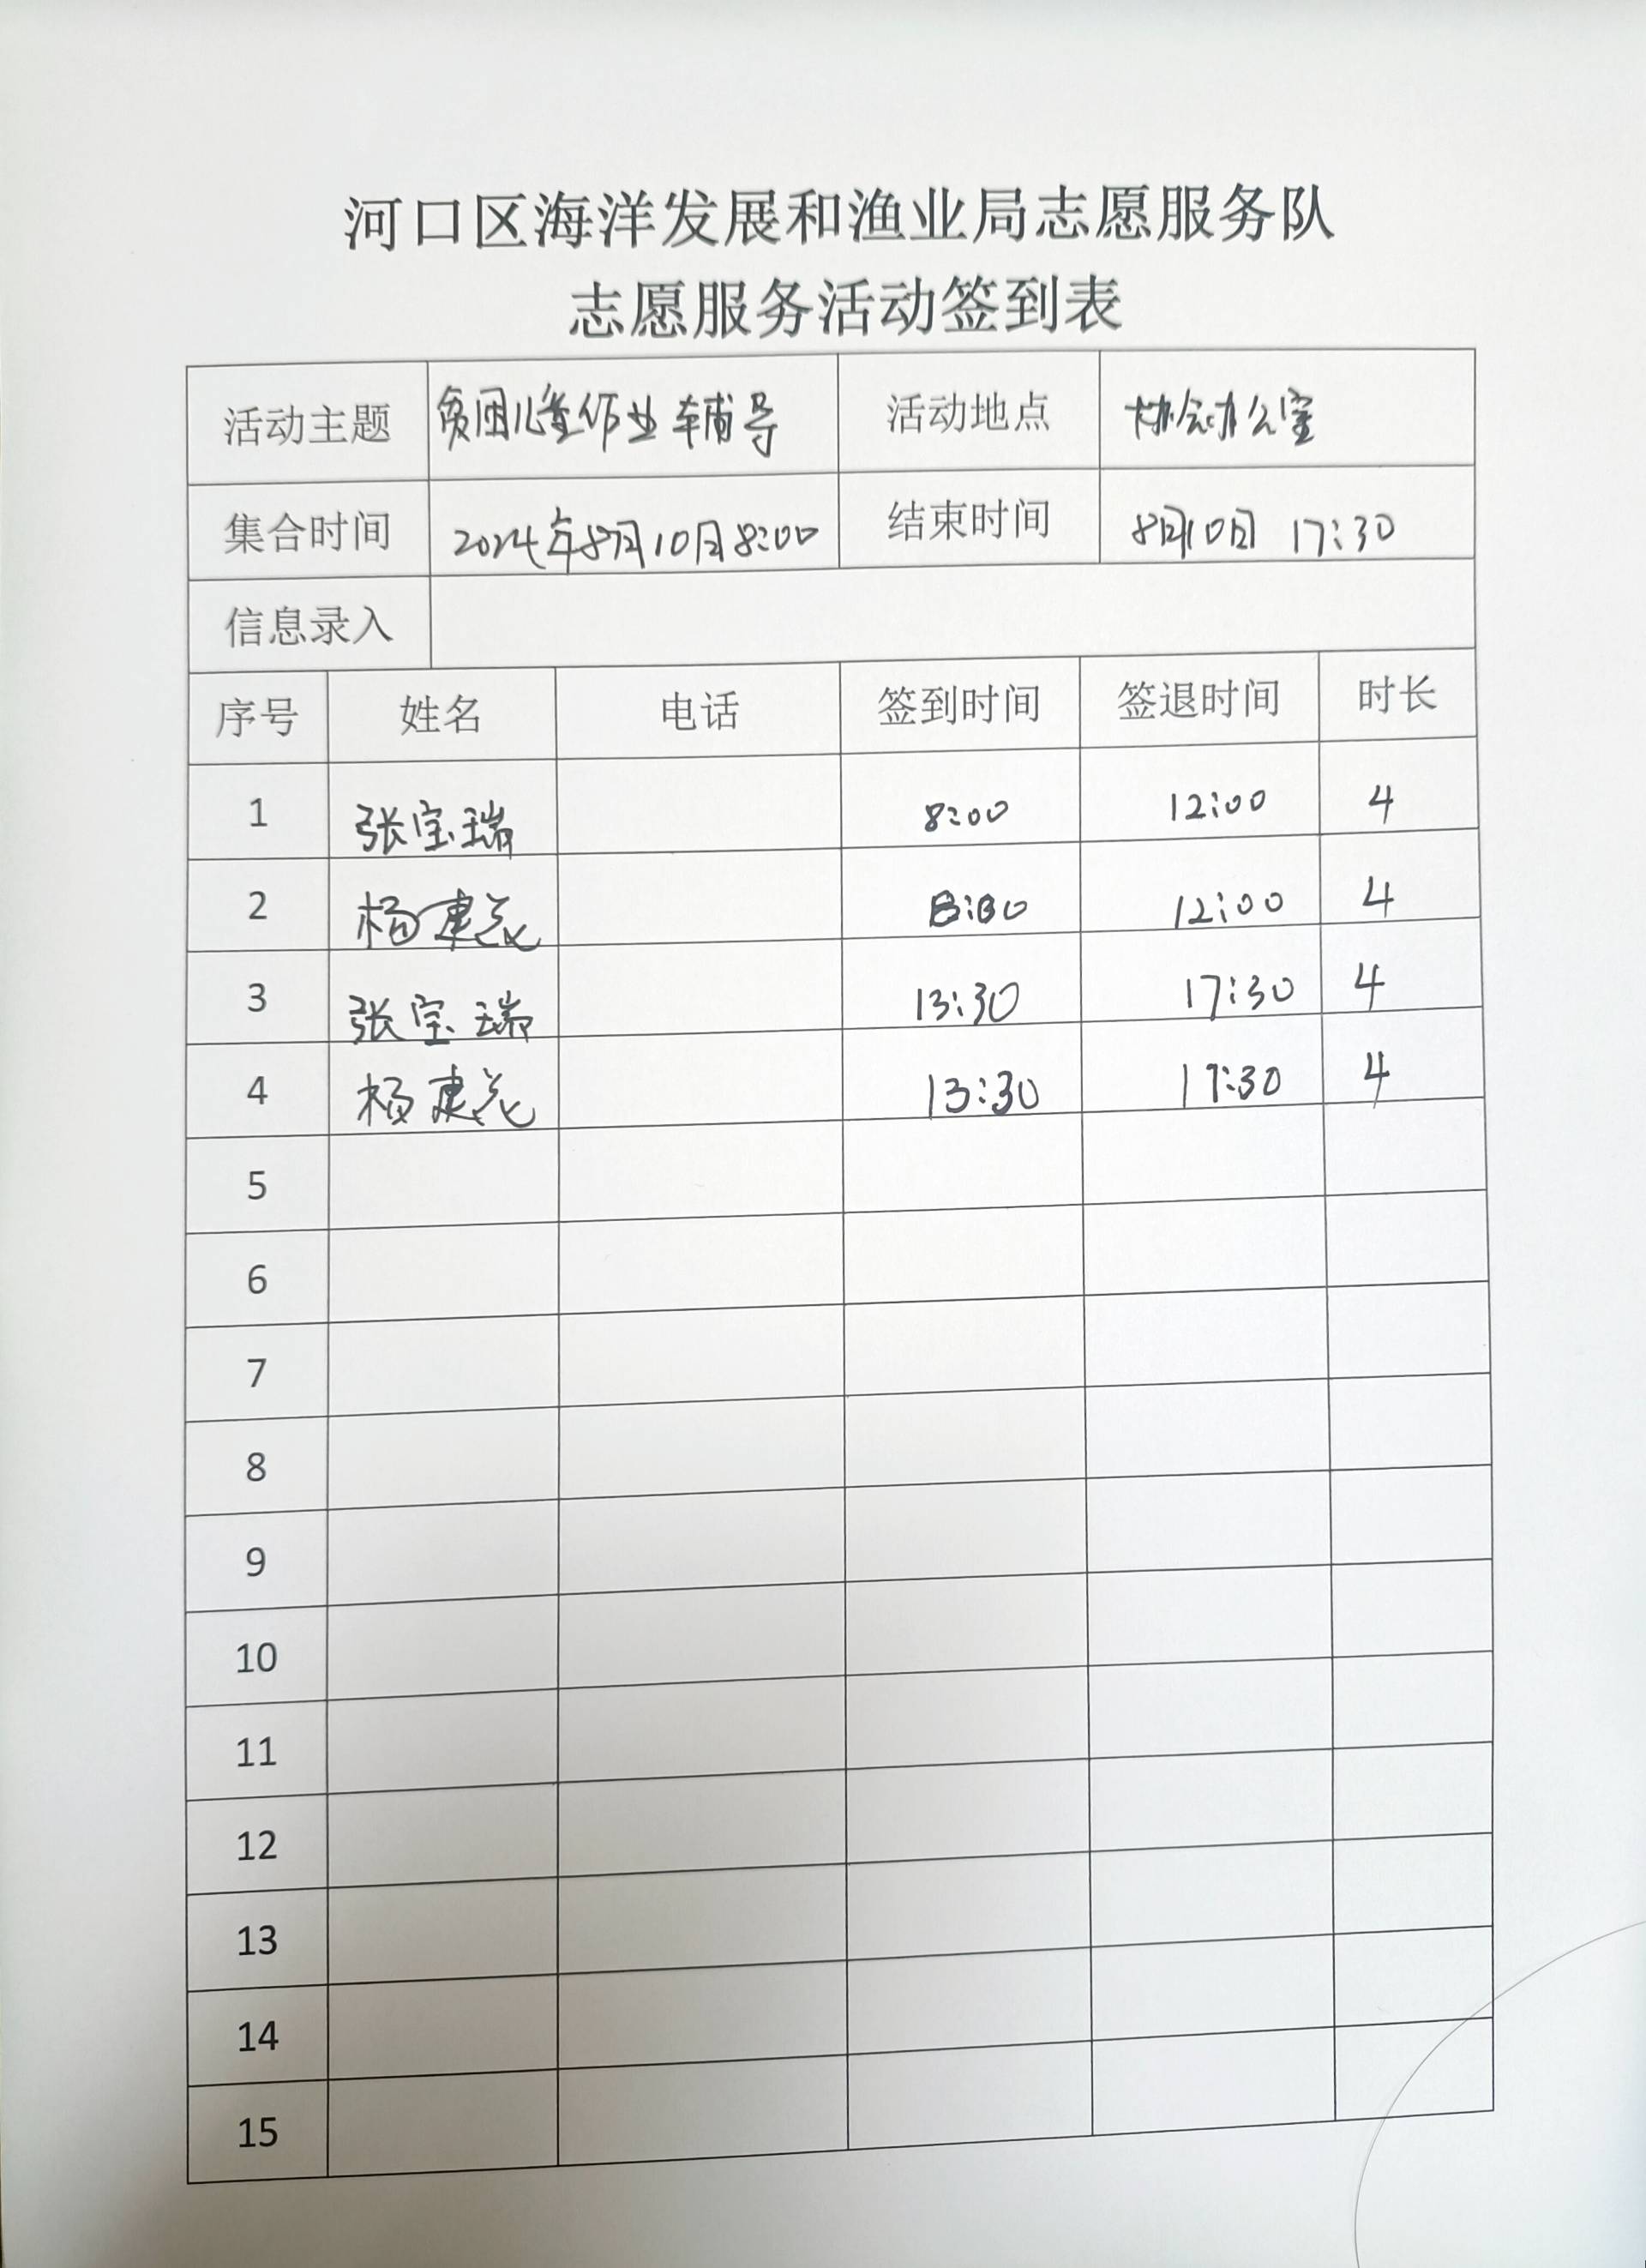 河口区海洋发展和渔业局志愿服务队
志愿服务活动签到表
活动主题 贫困儿童作业辅导 活动地点 协会办公室
集合时间 2024年8月10日8:00 结束时间 8月10日 17:30
信息录入
序号 姓名 电话 签到时间 签退时间 时长
1 张宝瑞 8:00 12:00 4
2 杨建 8:00 12:00 4
3 张宝瑞 13:30 17:30 4
4 杨建 13:30 17:30 4
5
6
7
8
9
10
11
12
13
14
15